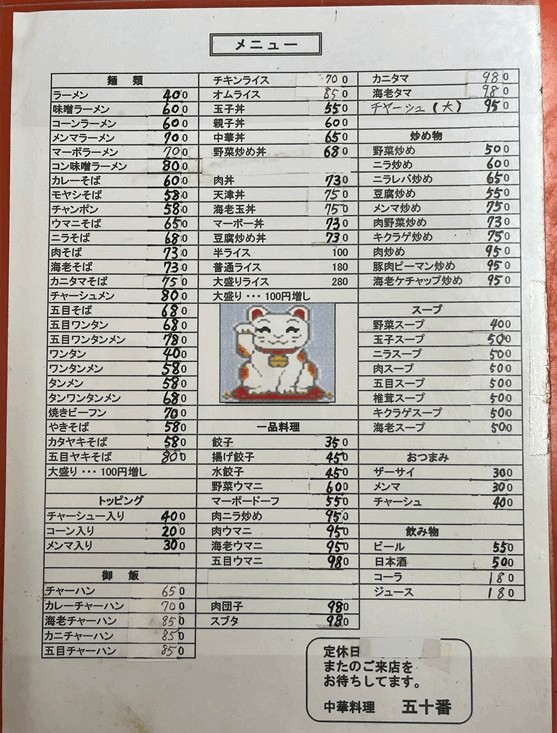 メニュー
麺 類
ラーメン 400
味噌ラーメン 600
コーンラーメン 600
メンマラーメン 700
マーボラーメン 700
コン味噌ラーメン 800
カレーそば 600
モヤシそば 580
チャンポン 580
ウマニそば 650
ニラそば 680
肉そば 730
海老そば 730
カニタマそば 750
チャーシュメン 800
五目そば 680
五目ワンタン 680
五目ワンタンメン 780
ワンタン 400
ワンタンメン 580
タンメン 580
タンワンタンメン 680
焼きビーフン 700
やきそば 580
カタヤキそば 580
五目ヤキそば 800
大盛り・・・100円増し
トッピング
チャーシュー入り 400
コーン入り 200
メンマ入り 300
御 飯
チャーハン 650
カレーチャーハン 700
海老チャーハン 850
カニチャーハン 850
五目チャーハン 850
チキンライス 700
オムライス 850
玉子丼 550
親子丼 600
中華丼 650
野菜炒め丼 680
肉丼 730
天津丼 750
海老玉丼 750
マーボー丼 730
豆腐炒め丼 730
半ライス 100
普通ライス 180
大盛りライス 280
大盛り・・・100円増し
一品料理
餃子 350
揚げ餃子 450
水餃子 450
野菜ウマニ 600
マーボードーフ 550
肉ニラ炒め 950
肉ウマニ 950
海老ウマニ 950
五目ウマニ 980
肉団子 980
スブタ 980
カニタマ 980
海老タマ 980
チャーシュ(大) 950
炒め物
野菜炒め 500
ニラ炒め 600
ニラレバ炒め 650
豆腐炒め 550
メンマ炒め 750
肉野菜炒め 730
キクラゲ炒め 750
肉炒め 950
豚肉ピーマン炒め 950
海老ケチャップ炒め 950
スープ
野菜スープ 400
玉子スープ 500
ニラスープ 500
肉スープ 500
五目スープ 500
椎茸スープ 500
キクラゲスープ 500
海老スープ 500
おつまみ
ザーサイ 300
メンマ 300
チャーシュ 400
飲み物
ビール 550
日本酒 500
コーラ 180
ジュース 180
定休日
またのご来店を
お待ちしてます。
中華料理 五十番